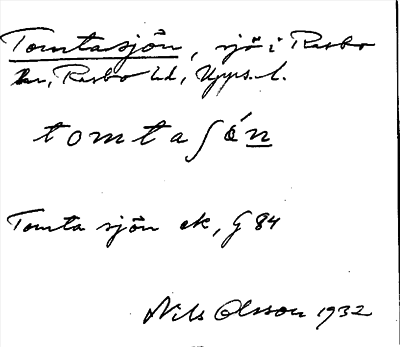 Tomtasjön, sjö i Rasbo
sn, Rasbo hd, Upps. l.
tomtaʃǿn
Tomta sjön ek, G 84
Nils Olsson 1932